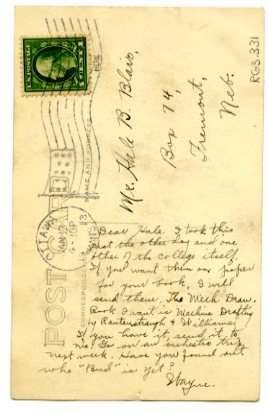 RG3.331
Mr. Gale B. Blair,
Box 74,
Fremont,
Neb.
POST CARD
NAME AND ADDRESS
CORRESPONDENCE
OTTAWA
KANS.
Dear Gale. I took this
just the other day and one
other of the college itself.
If you want them on paper
for your book, I will
send them. The Mech. Draw.
Book I want is Machine Drafting
by Rautenstraugh & Williams.
If you have it, send it to
me. Go on an orchestra trip
next week. Have you found out
who "Bud" is yet?
Wayne.